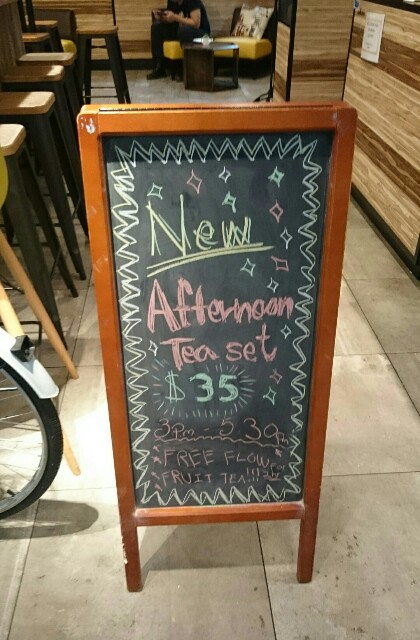 New
Afternoon
Tea set
$35
3pm - 5.30pm
FREE FLOW
FRUIT TEA!!!